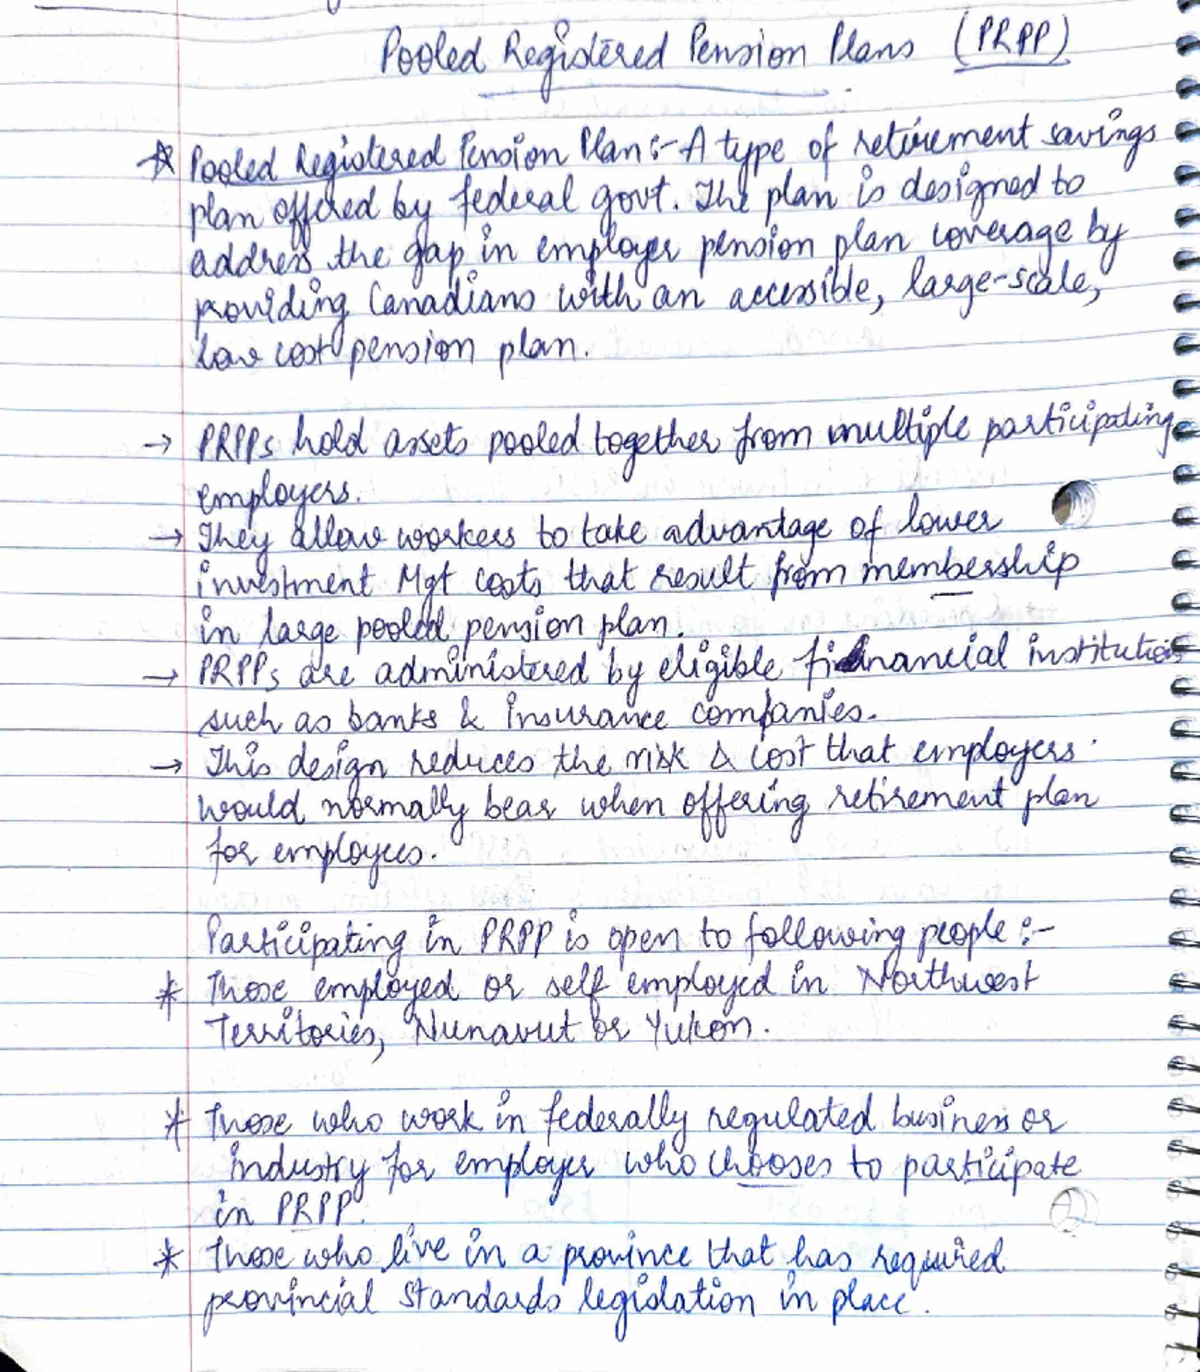 Pooled Registered Pension Plans (PRPP)
☆ Pooled Registered Pension Plan:- A type of retirement savings
plan offered by federal govt. The plan is designed to
address the gap in employer pension plan coverage by
providing Canadians with an accessible, large-scale,
low cost pension plan.
→ PRPPs hold assets pooled together from multiple participating
employers.
→ They allow workers to take advantage of lower
investment Mgt costs that result from membership
in large pooled pension plan.
→ PRPPs are administered by eligible financial institution
such as banks & insurance companies.
→ This design reduces the risk & cost that employers
would normally bear when offering retirement plan
for employees.
Participating in PRPP is open to following people:-
* Those employed or self employed in Northwest
Territories, Nunavut or Yukon.
* Those who work in federally regulated business or
industry for employer who chooses to participate
in PRPP.
* Those who live in a province that has required
provincial standards legislation in place.